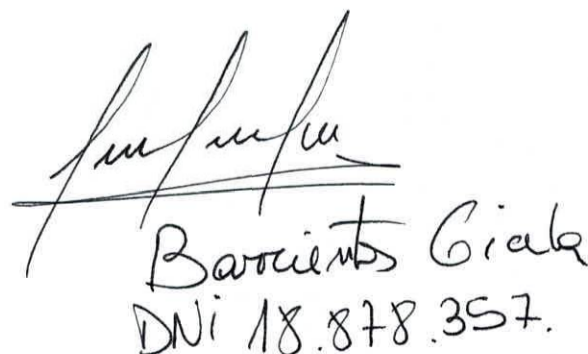 Barrientos Giala
DNi 18.878.357.